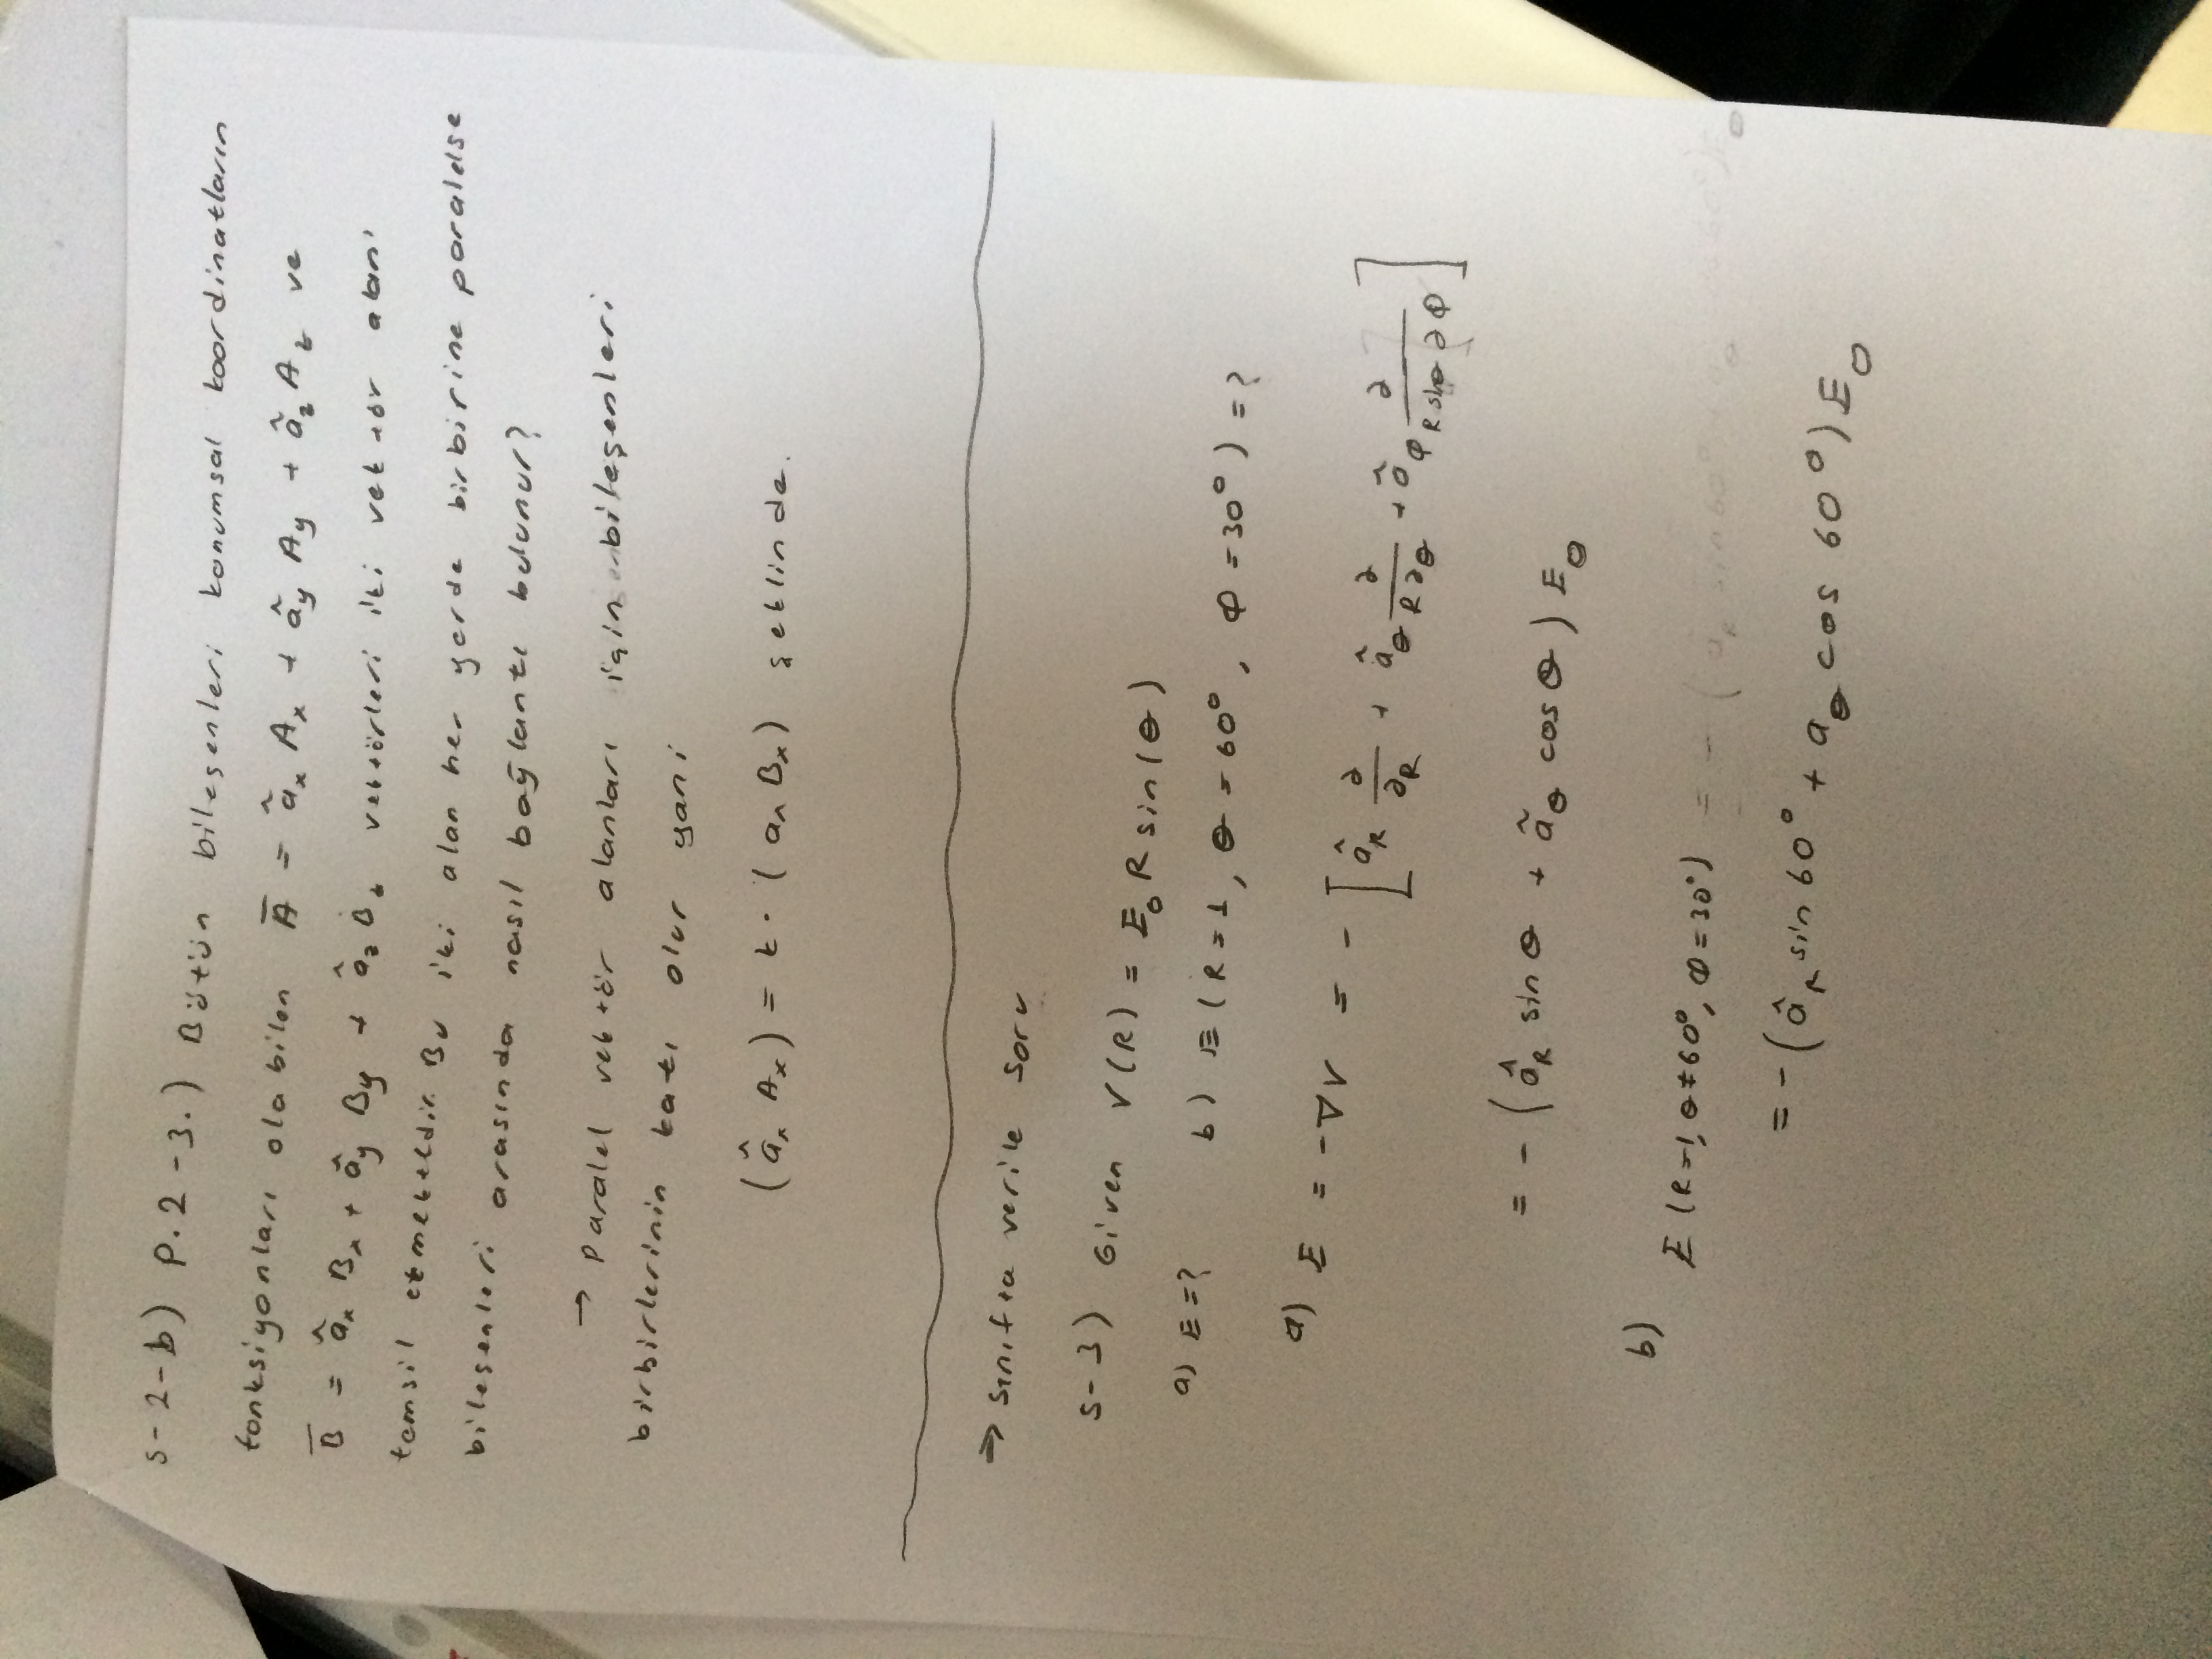 s-2-b) P.2-3.) Bütün bileşenleri konumsal koordinatların
fonksiyonları olabilen A̅ = âₓ Aₓ + â_y A_y + â_z A_z ve
B̅ = âₓ Bₓ + â_y B_y + â_z B_z vektörleri iki vektör alanı
temsil etmektedir. Bu iki alan her yerde birbirine paralelse
bileşenleri arasında nasıl bağlantı bulunur?
→ Paralel vektör alanları için bileşenleri
birbirlerinin katı olur yani
(âₓ Aₓ) = k · (aₓ Bₓ) şeklinde.
⇒ sınıfta verile soru
s-3) Given V(R) = E₀ R sin(θ)
a) E = ? b) E (R = 1, θ = 60°, Φ = 30°) = ?
a) E = -∇V = - [ â_R ∂/∂R + â_θ ∂/R∂θ + â_Φ ∂/R sinθ ∂Φ ]
= - (â_R sin θ + ã_θ cos θ) E₀
b)
E (R=1, θ=60°, Φ=30°)
= - (â_R sin 60° + a_θ cos 60°) E₀